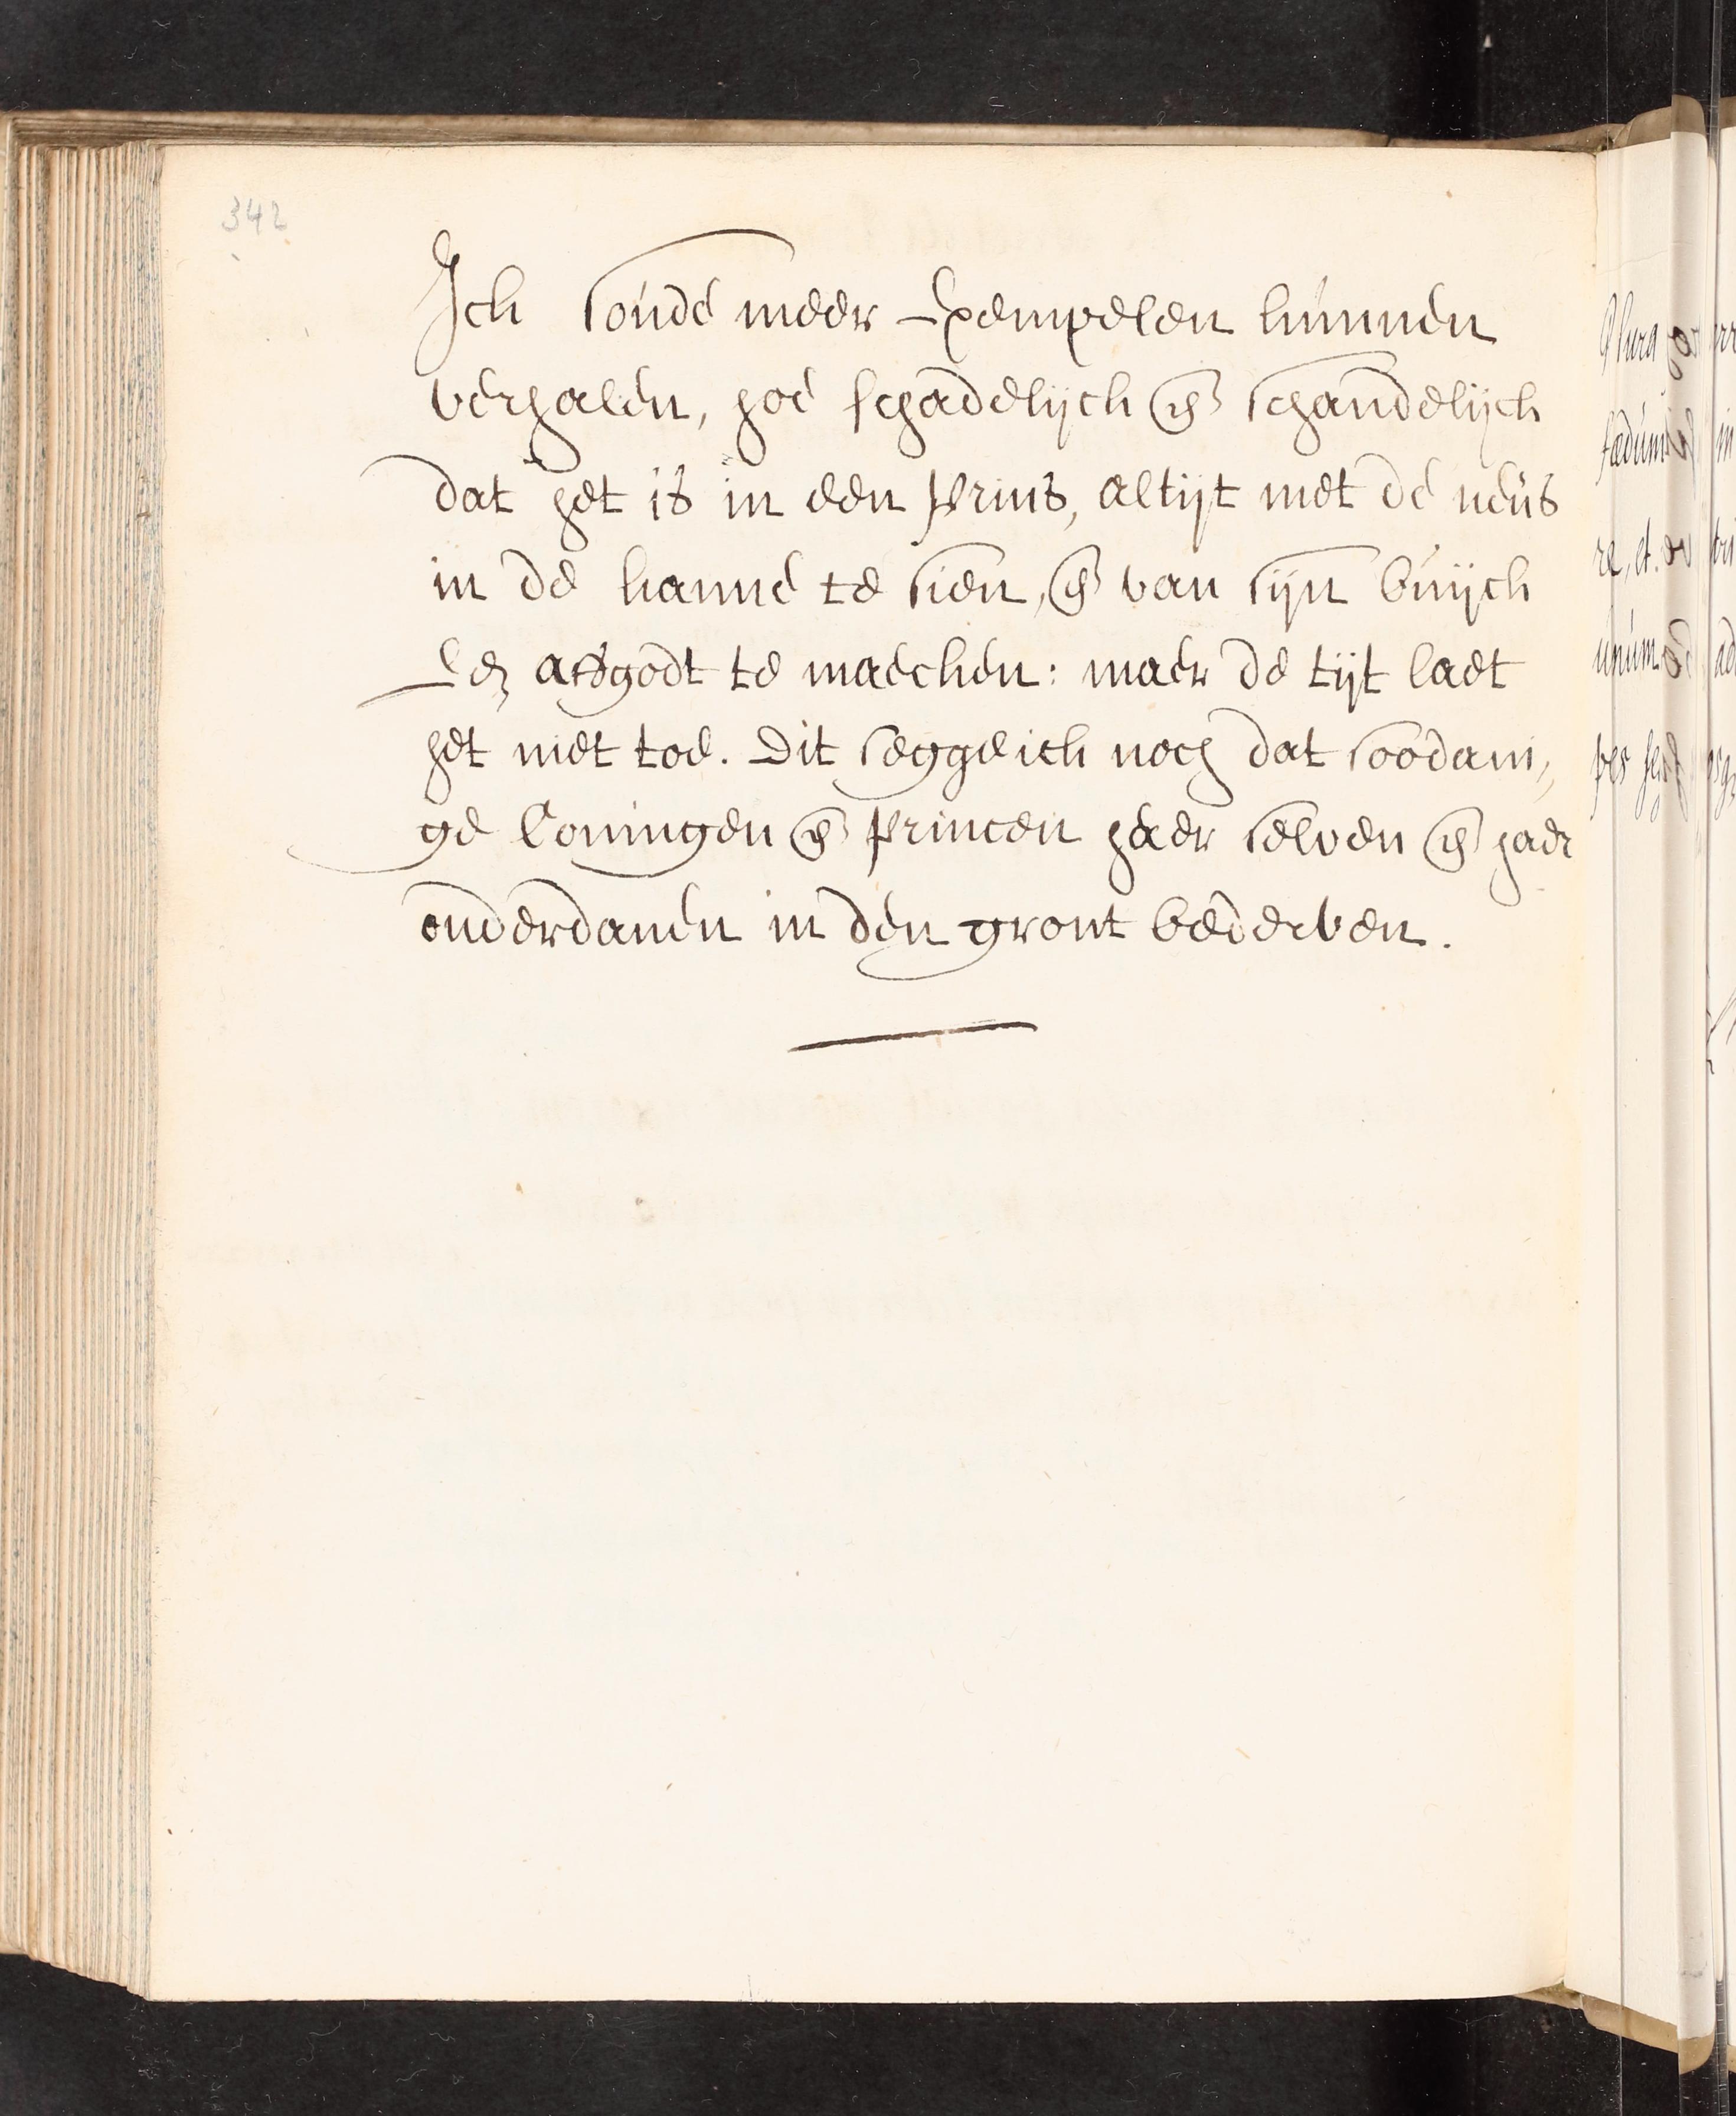 342
Ick soude meer Exempelen kunnen
verhalen, hoe schadelijck en schandelijck
dat het is in een Prins, altijt met de neus
in de kanne te sien, en van sijn buijck
Een afgodt te maecken: maer de tijt laet
het niet toe. Dit segge ick noch dat soodani,
ge Coningen en Princen haer selven en haer
onderdanen in den gront bederven.